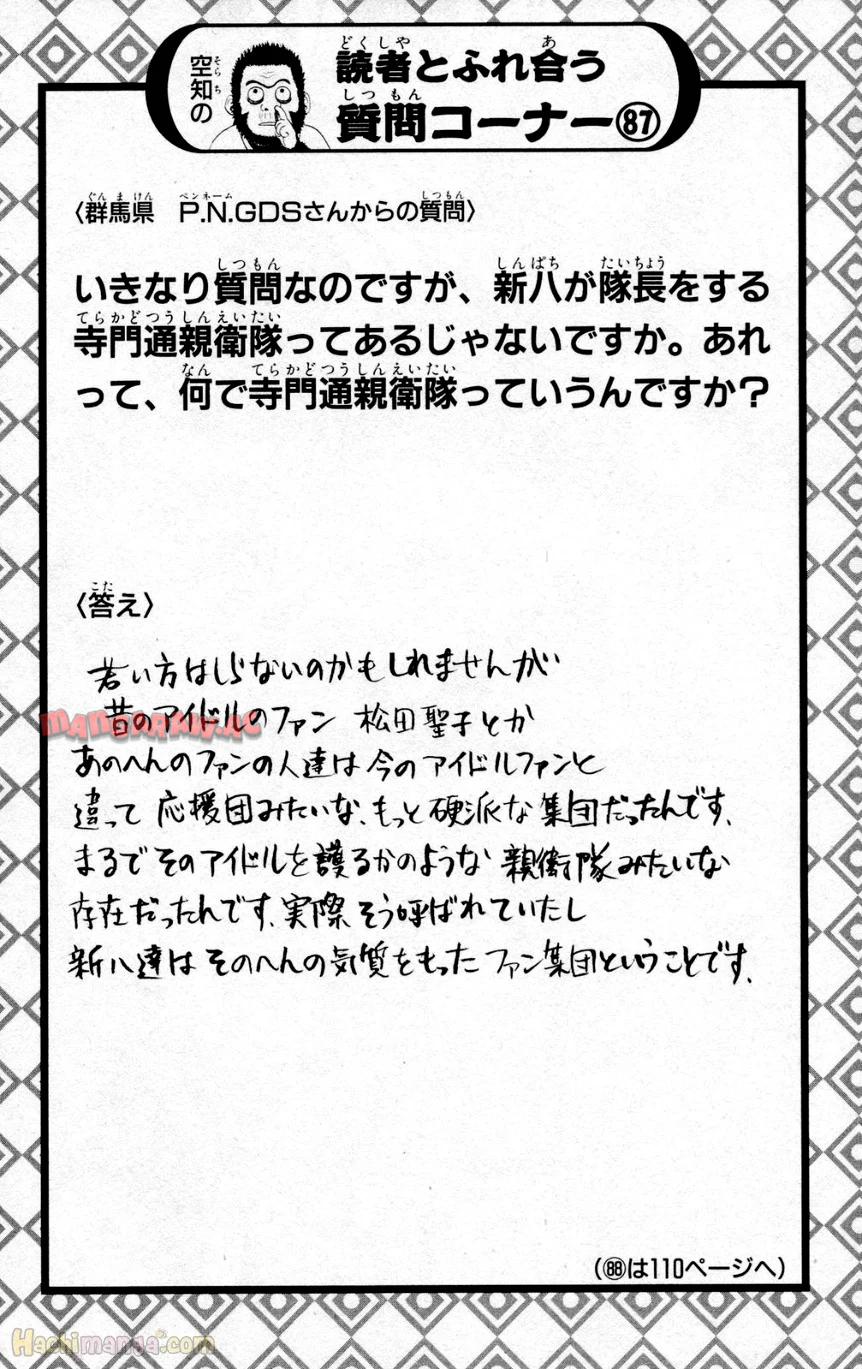 空知の
読者とふれ合う
質問コーナー87
〈群馬県 P.N.GDSさんからの質問〉
いきなり質問なのですが、新八が隊長をする
寺門通親衛隊ってあるじゃないですか。あれ
って、何で寺門通親衛隊っていうんですか？
〈答え〉
若い方はしらないのかもしれませんが
昔のアイドルのファン 松田聖子とか
あのへんのファンの人達は今のアイドルファンと
違って 応援団みたいな、もっと硬派な集団だったんです、
まるでそのアイドルを護るかのような 親衛隊みたいな
存在だったんです、実際そう呼ばれていたし
新八達はそのへんの気質をもったファン集団ということです、
（88は110ページへ）
MANGARAW.AC
Hachimanga.com